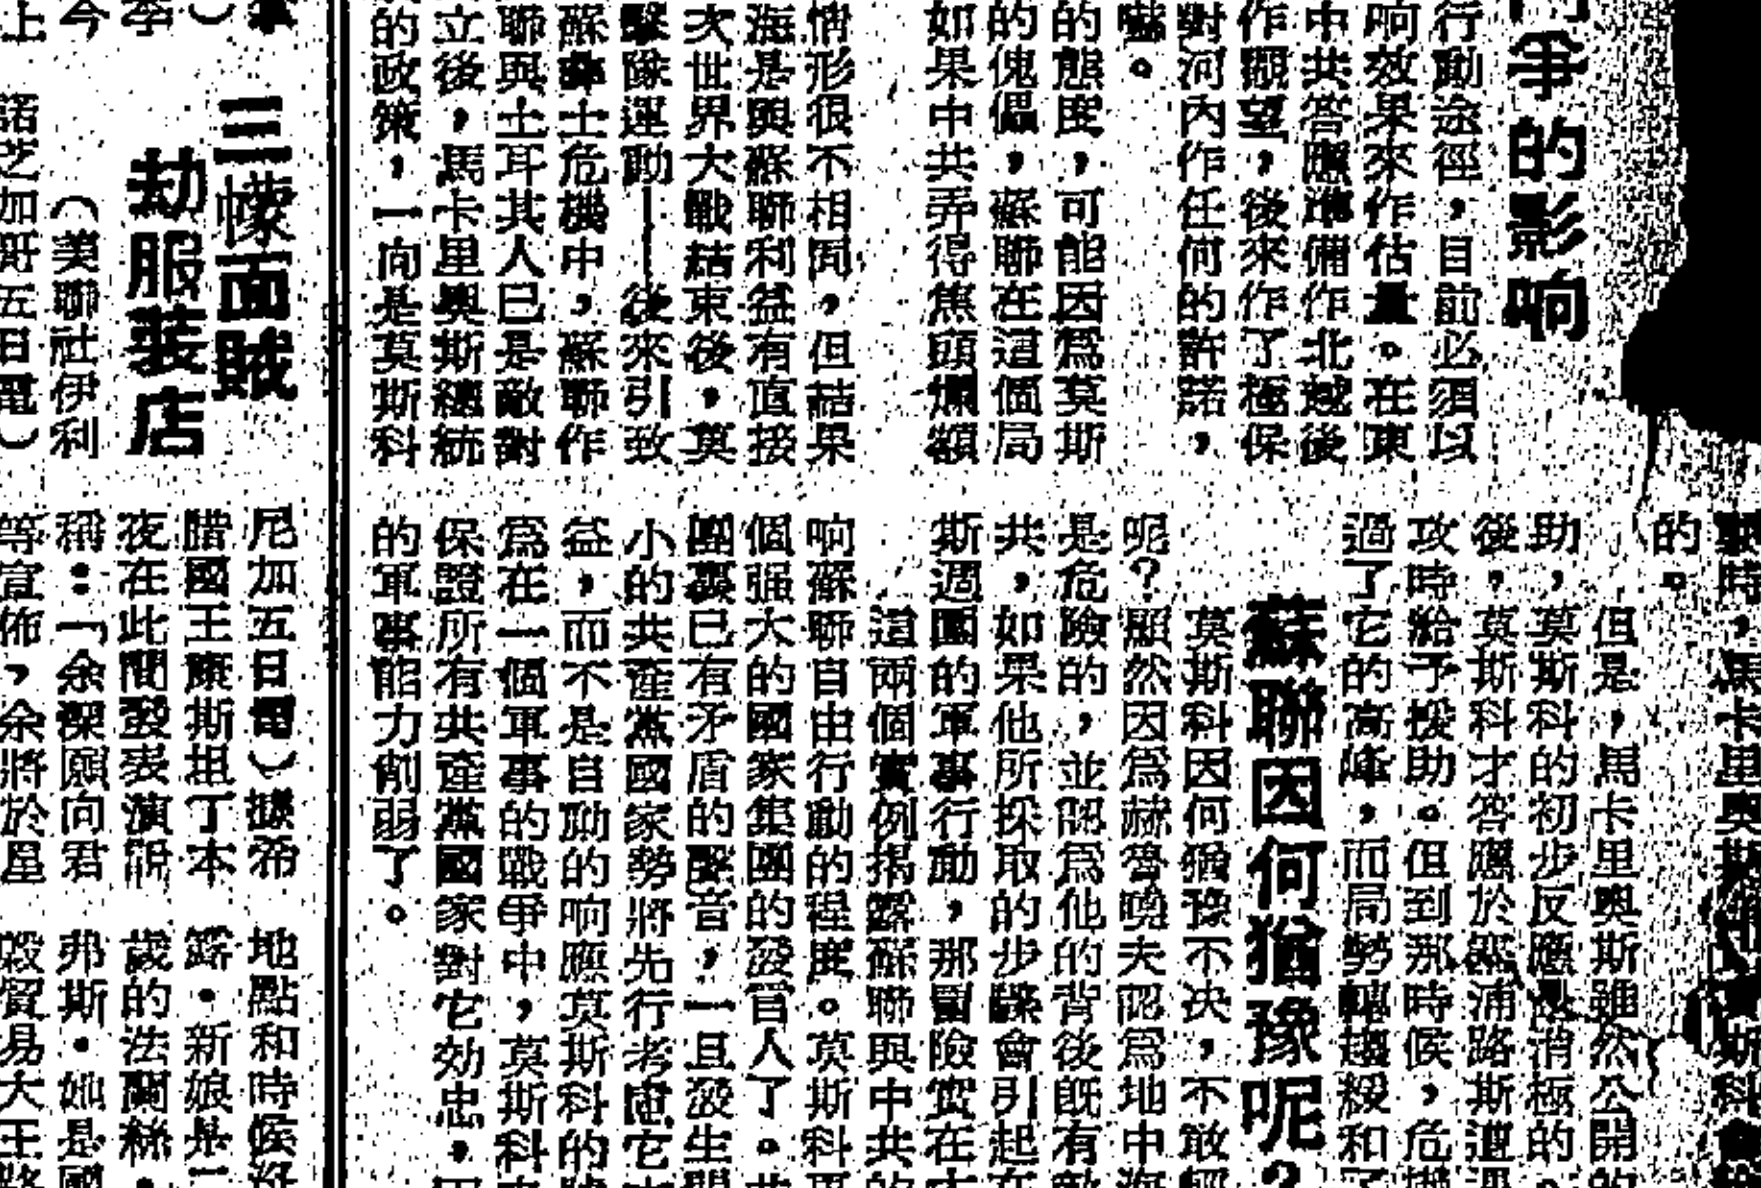 鬥爭的影响
行動途徑，目前必須以
响效果來作估量。在東
中共答應準備作北越後
作觀望，後來作了極保
對河內作任何的許諾，
嚇。
的態度，可能因爲莫斯
的傀儡，蘇聯在這個局
如果中共弄得焦頭爛額
情形很不相同，但結果
海是與蘇聯利益有直接
次世界大戰結束後，莫
擊隊運動——後來引致
蘇聯土危機中，蘇聯作
聯與土耳其人已是敵對
立後，馬卡里奧斯總統
的政策，一向是莫斯科
戰時，馬卡里奧斯
莫斯科會
的。
但是，馬卡里奧斯雖然公開的
助，莫斯科的初步反應是消極的。
後，莫斯科才答應於塞浦路斯遭遇
攻時給予援助。但到那時候，危機
過了它的高峰，而局勢轉趨緩和了
蘇聯因何猶豫呢？
莫斯科因何猶豫不决，不敢輕
呢？顯然因爲赫魯曉夫認爲地中海
是危險的，並認爲他的背後旣有敵
共，如果他所採取的步驟會引起在
斯週圍的軍事行動，那冒險實在太
這兩個實例揭露蘇聯與中共的
响蘇聯自由行動的程度。莫斯科再
個强大的國家集團的發言人了。共
團裏已有矛盾的聲音，一旦發生問
小的共產黨國家勢將先行考慮它
益，而不是自動的响應莫斯科的
爲在一個軍事的戰爭中，莫斯科
保證所有共產黨國家對它効忠，
的軍事能力削弱了。
三幪面賊
劫服裝店
（美聯社伊利
諾芝加哥五日電）
今
上
尼加五日電）據希
腊國王康斯坦丁本
夜在此間發表演說
稱：「余深願向君
等宣佈，余將於星
地點和時候
露．新娘是
歲的法蘭絲．
弗斯．她是國
毀貿易大王